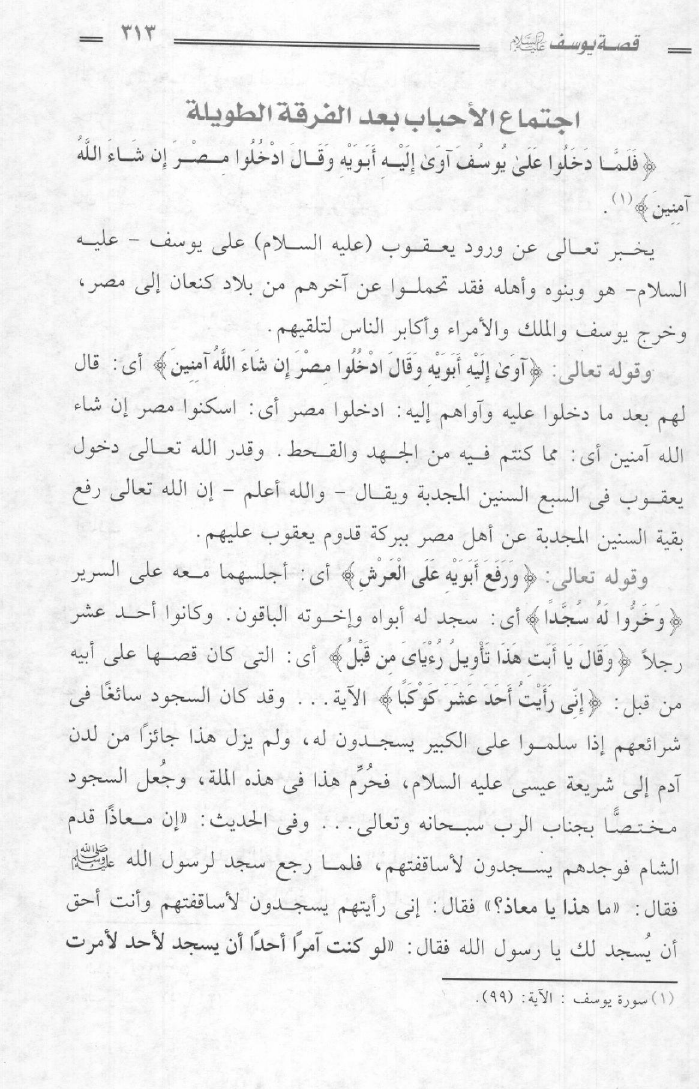 قصة يوسف عليه السلام ٣١٣
اجتماع الأحباب بعد الفرقة الطويلة
﴿فَلَمَّا دَخَلُوا عَلَىٰ يُوسُفَ آوَىٰ إِلَيْهِ أَبَوَيْهِ وَقَالَ ادْخُلُوا مِصْرَ إِن شَاءَ اللَّهُ
آمِنِينَ﴾(١).
يخبر تعالى عن ورود يعقوب (عليه السلام) على يوسف - عليه
السلام- هو وبنوه وأهله فقد تحملوا عن آخرهم من بلاد كنعان إلى مصر،
وخرج يوسف والملك والأمراء وأكابر الناس لتلقيهم.
وقوله تعالى: ﴿آوَىٰ إِلَيْهِ أَبَوَيْهِ وَقَالَ ادْخُلُوا مِصْرَ إِن شَاءَ اللَّهُ آمِنِينَ﴾ أى: قال
لهم بعد ما دخلوا عليه وآواهم إليه: ادخلوا مصر أى: اسكنوا مصر إن شاء
الله آمنين أى: مما كنتم فيه من الجهد والقحط. وقدر الله تعالى دخول
يعقوب فى السبع السنين المجدبة ويقال - والله أعلم - إن الله تعالى رفع
بقية السنين المجدبة عن أهل مصر ببركة قدوم يعقوب عليهم.
وقوله تعالى: ﴿وَرَفَعَ أَبَوَيْهِ عَلَى الْعَرْشِ﴾ أى: أجلسهما معه على السرير
﴿وَخَرُّوا لَهُ سُجَّدًا﴾ أى: سجد له أبواه وإخوته الباقون. وكانوا أحد عشر
رجلاً ﴿وَقَالَ يَا أَبَتِ هَذَا تَأْوِيلُ رُءْيَاىَ مِن قَبْلُ﴾ أى: التى كان قصها على أبيه
من قبل: ﴿إِنِّى رَأَيْتُ أَحَدَ عَشَرَ كَوْكَبًا﴾ الآية... وقد كان السجود سائغًا فى
شرائعهم إذا سلموا على الكبير يسجدون له، ولم يزل هذا جائزًا من لدن
آدم إلى شريعة عيسى عليه السلام، فحُرِّم هذا فى هذه الملة، وجُعل السجود
مختصًّا بجناب الرب سبحانه وتعالى... وفى الحديث: «إن معاذًا قدم
الشام فوجدهم يسجدون لأساقفتهم، فلما رجع سجد لرسول الله ﷺ
فقال: «ما هذا يا معاذ؟» فقال: إنى رأيتهم يسجدون لأساقفتهم وأنت أحق
أن يُسجد لك يا رسول الله فقال: «لو كنت آمرًا أحدًا أن يسجد لأحد لأمرت
(١) سورة يوسف : الآية: (٩٩).